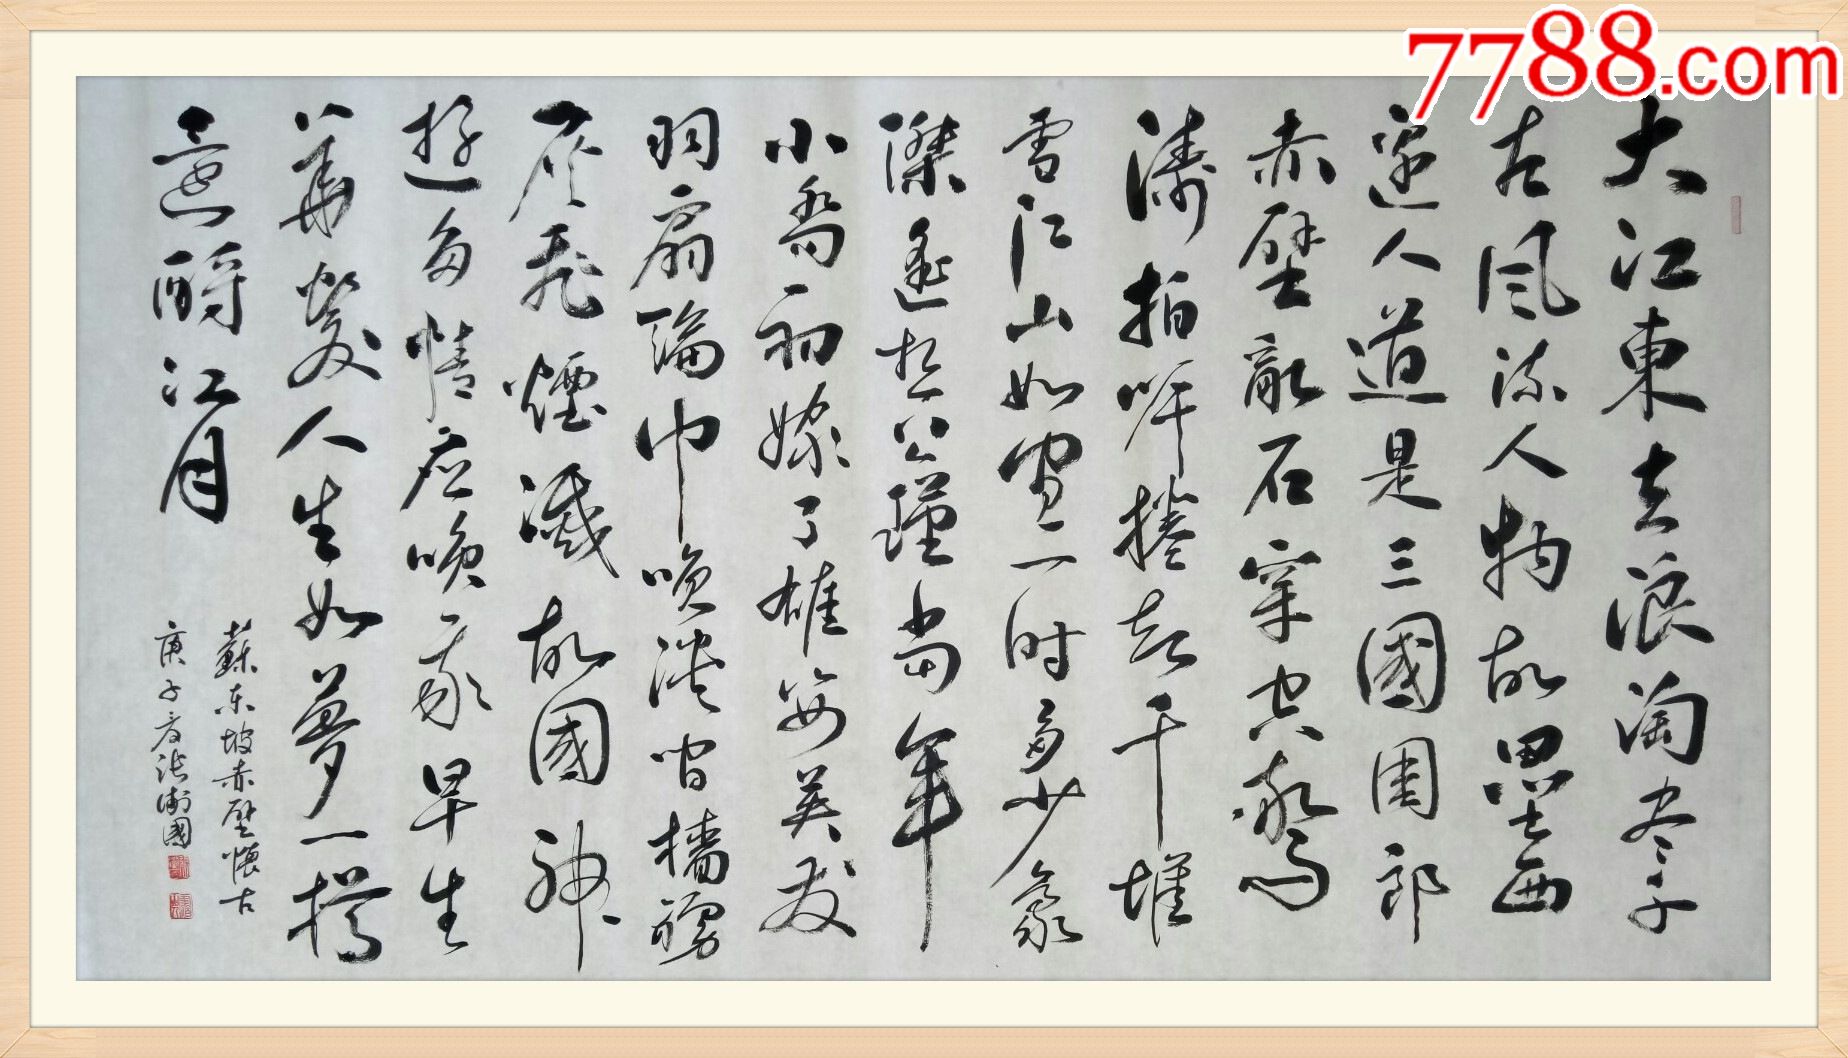 7788.com
大江東去浪淘尽千
古風流人物故壘西
邊人道是三國周郎
赤壁亂石穿空驚
濤拍岸捲起千堆
雪江山如畫一時多少豪
傑遥想公瑾當年
小喬初嫁了雄姿英发
羽扇綸巾咲談間檣櫓
灰飛煙滅故國神
遊多情应咲我早生
華髮人生如夢一樽
還酹江月
蘇东坡赤壁懷古
庚子夏張衛國